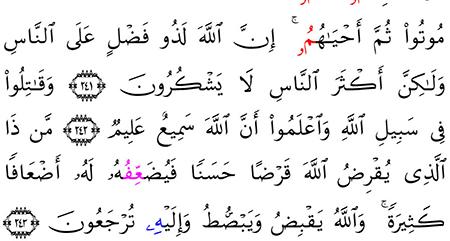 مُوتُواْ ثُمَّ أَحْيَـٰهُمُۥ ۚ إِنَّ ٱللَّهَ لَذُو فَضْلٍ عَلَى ٱلنَّاسِ
وَلَـٰكِنَّ أَكْثَرَ ٱلنَّاسِ لَا يَشْكُرُونَ ﴿٢٤١﴾ وَقَـٰتِلُواْ
فِى سَبِيلِ ٱللَّهِ وَٱعْلَمُواْ أَنَّ ٱللَّهَ سَمِيعٌ عَلِيمٌ ﴿٢٤٢﴾ مَّن ذَا
ٱلَّذِى يُقْرِضُ ٱللَّهَ قَرْضًا حَسَنًا فَيُضَعِّفُهُۥ لَهُۥ أَضْعَافًا
كَثِيرَةً ۚ وَٱللَّهُ يَقْبِضُ وَيَبْصُطُ وَإِلَيْهِۦ تُرْجَعُونَ ﴿٢٤٣﴾